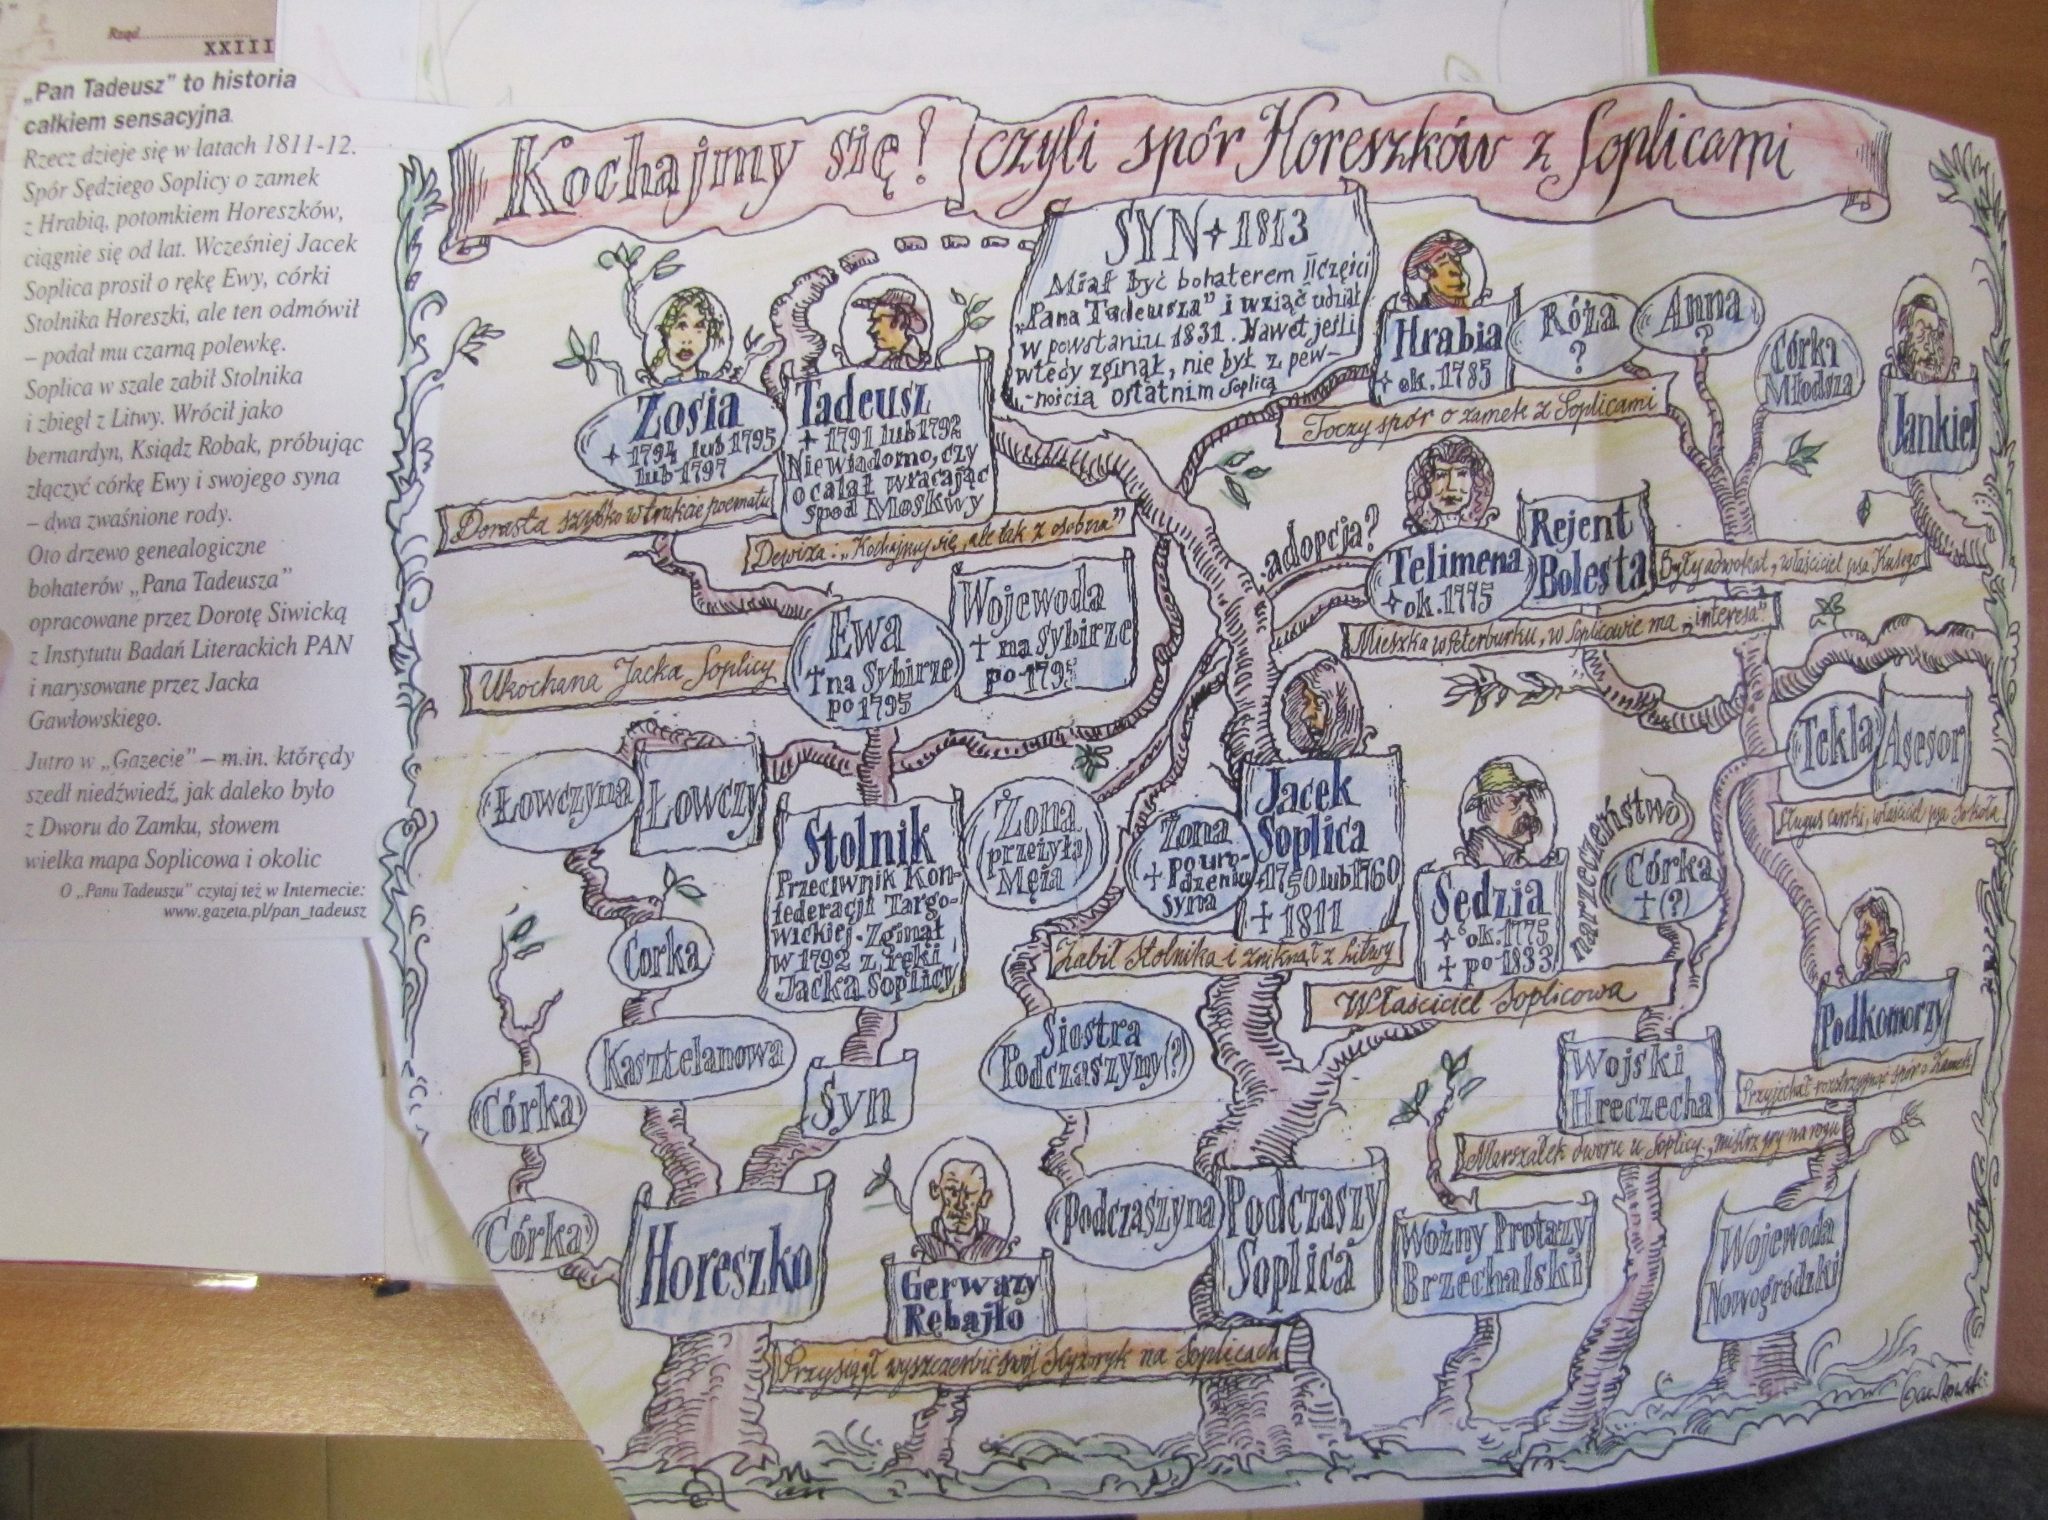 Rząd
XXIII
„Pan Tadeusz” to historia
całkiem sensacyjna.
Rzecz dzieje się w latach 1811-12.
Spór Sędziego Soplicy o zamek
z Hrabią, potomkiem Horeszków,
ciągnie się od lat. Wcześniej Jacek
Soplica prosił o rękę Ewy, córki
Stolnika Horeszki, ale ten odmówił
– podał mu czarną polewkę.
Soplica w szale zabił Stolnika
i zbiegł z Litwy. Wrócił jako
bernardyn, Ksiądz Robak, próbując
złączyć córkę Ewy i swojego syna
– dwa zwaśnione rody.
Oto drzewo genealogiczne
bohaterów „Pana Tadeusza”
opracowane przez Dorotę Siwicką
z Instytutu Badań Literackich PAN
i narysowane przez Jacka
Gawłowskiego.
Jutro w „Gazecie” – m.in. którędy
szedł niedźwiedź, jak daleko było
z Dworu do Zamku, słowem
wielka mapa Soplicowa i okolic
O „Panu Tadeuszu” czytaj też w Internecie:
www.gazeta.pl/pan_tadeusz
Kochajmy się! czyli spór Horeszków z Soplicami
SYN + 1813
Miał być bohaterem II części
„Pana Tadeusza” i wziąć udział
w powstaniu 1831. Nawet jeśli
wtedy zginął, nie był z pew-
-nością ostatnim Soplicą
Zosia
+ 1794 lub 1795
lub 1797
Dorasta szybko w trakcie poematu
Tadeusz
+ 1791 lub 1792
Niewiadomo, czy
ocalał wracając
spod Moskwy
Dewiza: „Kochajmy się, ale tak z osobna”
Hrabia
+ ok. 1785
Toczy spór o zamek z Soplicami
Róża
?
Anna
?
Córka
Młodsza
Jankiel
adopcja?
Telimena
+ ok. 1775
Rejent
Bolesta
Były adwokat, właściciel psa Kusego
Mieszka w Peterburku, w Soplicowie ma „interesa”
Ewa
† na Sybirze
po 1795
Wojewoda
† na sybirze
po 1795
Ukochana Jacka Soplicy
Tekla
Asesor
Sługus carski, właściciel psa Sokoła
Łowczyna
Łowczy
Stolnik
Przeciwnik Kon-
federacji Targo-
wickiej. Zginął
w 1792 z ręki
Jacka Soplicy
Żona
(przeżyła
Męża)
Żona
† po uro-
dzeniu
syna
Jacek
Soplica
+ 1750 lub 1760
† 1811
Zabił Stolnika i zniknął z Litwy
Sędzia
+ ok. 1775
† po 1833
Właściciel Soplicowa
narzeczeństwo
Córka
† (?)
Podkomorzy
Przyjechał rozstrzygnąć spór o Zamek
Corka
Kasztelanowa
Syn
Córka
Córka
Horeszko
Siostra
Podczaszyny(?)
Podczaszyna
Podczaszy
Soplica
Wojski
Hreczecha
Marszałek dworu u Soplicy, mistrz gry na rogu
Gerwazy
Rębajło
Przysiągł wyszczerbić swój Scyzoryk na Soplicach
Woźny Protazy
Brzechalski
Wojewoda
Nowogródzki
Gawłowski